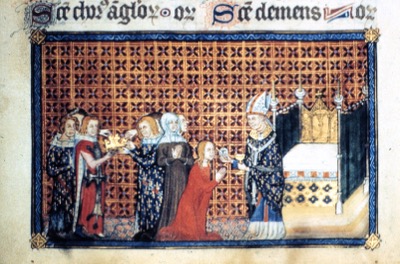 Sce chrⁱ aglor or Sce clemens or